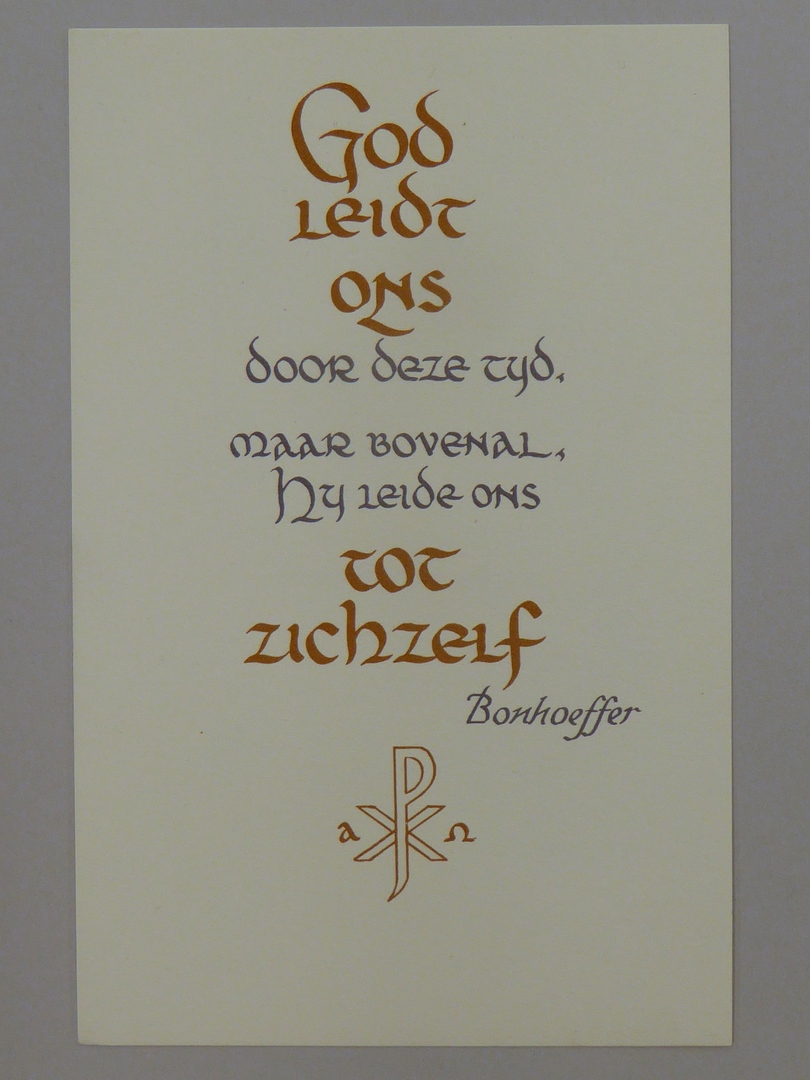 God
leidt
ons
door deze tyd,
maar bovenal,
Hy leide ons
tot
zichzelf
Bonhoeffer
a Ω